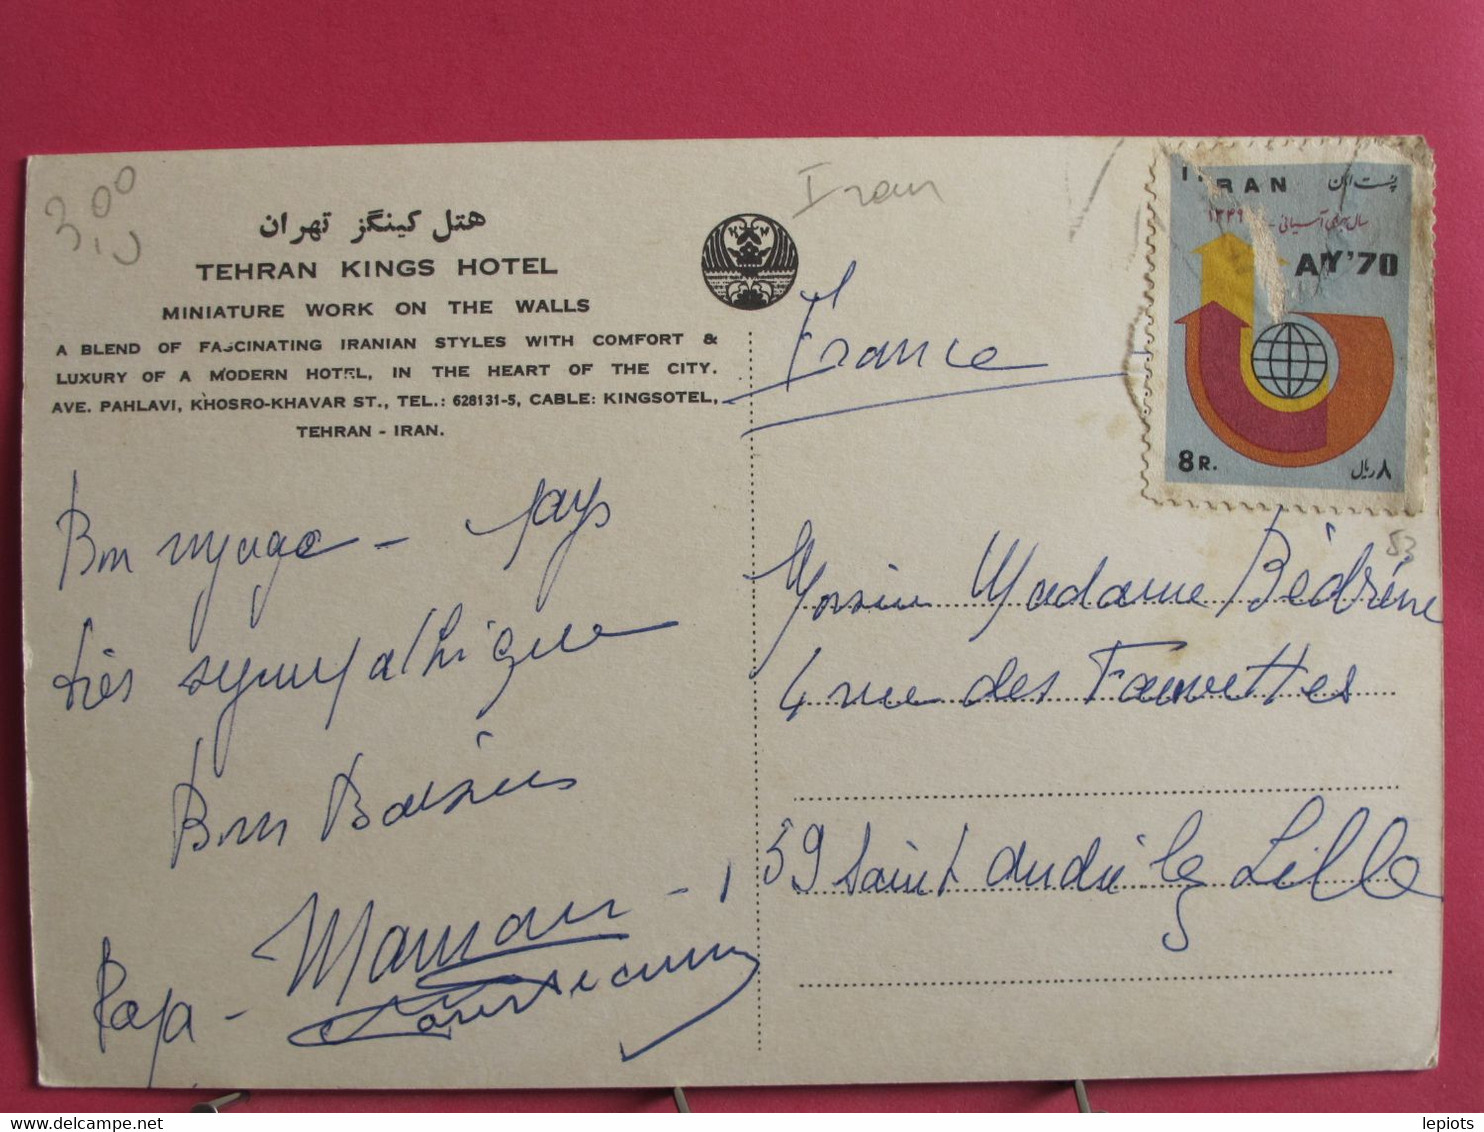 3,00
Iran
هتل کینگز تهران
TEHRAN KINGS HOTEL
MINIATURE WORK ON THE WALLS
A BLEND OF FASCINATING IRANIAN STYLES WITH COMFORT &
LUXURY OF A MODERN HOTEL, IN THE HEART OF THE CITY.
AVE. PAHLAVI, KHOSRO-KHAVAR ST., TEL.: 628131-5, CABLE: KINGSOTEL,
TEHRAN - IRAN.
K H
IRAN پست ایران
۱۳۴۹ سال بهره‌وری آسیائی
AIY'70
8 R. ۸ ریال
53
France
Bon voyage - pays
très sympathique
Bons Baisers
Papa - Maman -
Monsieur Madame Bédrine
4 rue des Fauvettes
59 Saint André lez Lille
lepiots